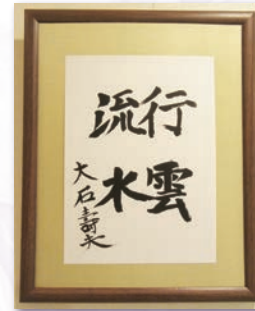 行雲
流水
大石壽夫